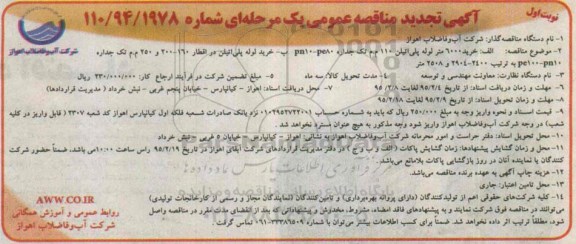 نوبت اول
آگهی تجدید مناقصه عمومی یک مرحله‌ای شماره ۱۱۰/۹۴/۱۹۷۸
شرکت آب‌وفاضلاب اهواز
۱- نام دستگاه مناقصه‌گذار: شرکت آب‌وفاضلاب اهواز
۲- موضوع مناقصه: الف: خرید ۶۰۰۰ متر لوله پلی‌اتیلن ۱۱۰ م.م تک جداره pn10-pe80 ب- خرید لوله پلی‌اتیلن در اقطار ۱۶۰-۲۰۰ و ۲۵۰ م.م تک جداره
pe100-pn10 به ترتیب ۲۴۰۰-۲۹۰۴ و ۲۵۰۸ متر
۳- نام دستگاه نظارت: معاونت مهندسی و توسعه ۴- مدت تحویل کالا: سه ماه ۵- مبلغ تضمین شرکت در فرآیند ارجاع کار: ۲۳۰/۰۰۰/۰۰۰ ریال
۶- مهلت و زمان دریافت اسناد: از تاریخ ۹۵/۲/۴ لغایت ۹۵/۲/۸ ۷- محل دریافت اسناد: اهواز - کیانپارس - خیابان پنجم غربی - نبش خرداد (مدیریت قراردادها)
۸- مهلت و زمان تحویل اسناد: از تاریخ ۹۵/۲/۹ لغایت ۹۵/۲/۱۸
۹- قیمت اسناد و نحوه واریز وجه به مبلغ ۲۵۰/۰۰۰ ریال که باید به شماره حساب نزد بانک صادرات شعبه فلکه اول کیانپارس اهواز کد شعبه ۲۳۰۷ (قابل واریز در کلیه
شعب) در وجه شرکت آب‌وفاضلاب اهواز واریز شود وجه مذکور به هیچ عنوان مسترد نخواهد شد.
۱۰- محل تحویل اسناد: دفتر حراست و امور محرمانه شرکت آب‌وفاضلاب اهواز به نشانی اهواز - کیانپارس - خیابان ۵ غربی - نبش خرداد
۱۱- محل و زمان گشایش پیشنهادها: زمان گشایش پاکات (الف و ب و ج) در دفتر مدیریت قراردادهای شرکت آبفای اهواز در تاریخ ۹۵/۲/۱۹ راس ساعت ۱۰:۰۰ می باشد. ضمناً حضور شرکت
کنندگان یا نماینده آنان در روز بازگشایی پاکات بلامانع می‌باشد.
۱۲- هزینه چاپ آگهی به عهده برنده مناقصه می‌باشد.
۱۳- محل تامین اعتبار: جاری
۱۴- کلیه شرکت‌های حقوقی اعم از تولیدکنندگان (دارای پروانه بهره‌برداری) و تامین‌کنندگان (نمایندگان مجاز و رسمی از کارخانجات تولیدی)
می‌توانند در مناقصه فوق شرکت نمایند و به پیشنهادهای فاقد امضاء، مشروط، مخدوش و پیشنهاداتی که بعد از انقضای مدت مقرر در مناقصه واصل
شود، مطلقاً ترتیب اثر داده نخواهد شد. ضمناً برای کسب اطلاعات بیشتر می‌توان با شماره تماس گرفت.
AWW.CO.IR
روابط عمومی و آموزش همگانی
شرکت آب‌وفاضلاب اهواز